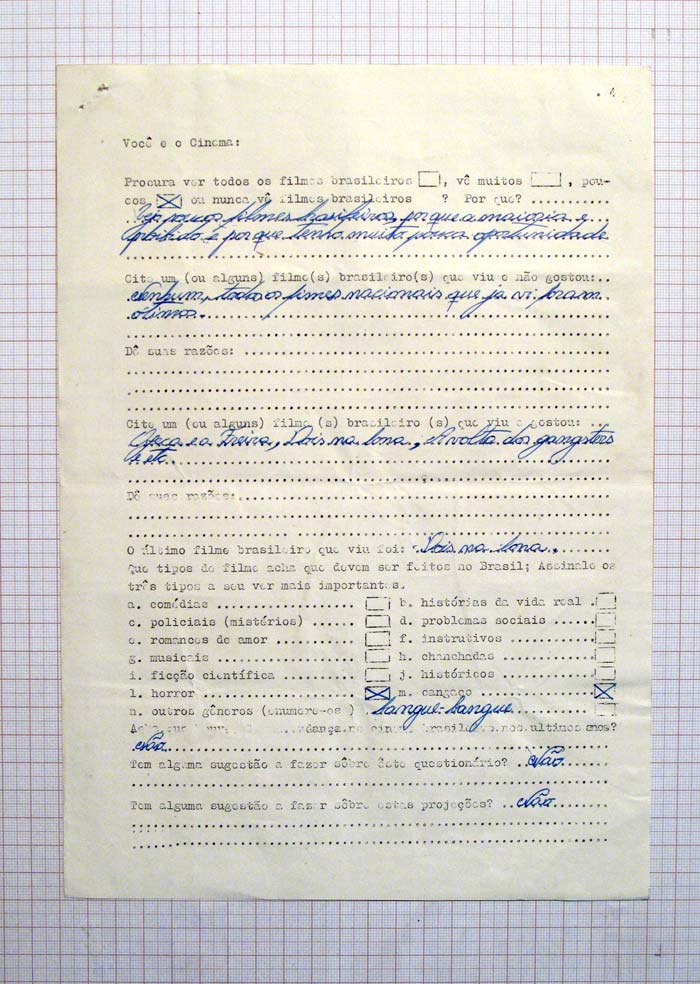 . 4
Você e o Cinema:
Procura ver todos os filmes brasileiros , vê muitos , pou-
cos ou nunca vê filmes brasileiros ? Por que? ............
Vejo poucos filmes brasileiros, porque a maioria e
proibido e porque tenho muita pouca opatunidade
Cite um (ou alguns) filme(s) brasileiro(s) que viu e não gostou:..
Nenhum, todos os fimes nacionais que ja vi foram
ótimos.
Dê suas razões:
Cite um (ou alguns) filme (s) brasileiro (s) que viu e gostou: ...
e a Freira, Dois na lona, A volta dos gangsters
e etc.
Dê suas razões:
O último filme brasileiro que viu foi: Dois na lona.
Que tipos de filme acha que devem ser feitos no Brasil; Assinale os
três tipos a seu ver mais importantes.
a. comédias ..................... b. histórias da vida real .
c. policiais (mistérios) ...... d. problemas sociais ......
e. romances de amor ........... f. instrutivos ...........
g. musicais ................... h. chanchadas ............
i. ficção científica .......... j. históricos ............
l. horror ..................... m. cangaço ..............
n. outros gêneros (enumere-os ) Bangue-bangue
Acha que houve mudança no cinema brasileiro nos ultimos anos?
Não
Tem alguma sugestão a fazer sôbre êste questionário? Não
Tem alguma sugestão a fazer sôbre estas projeções? Não